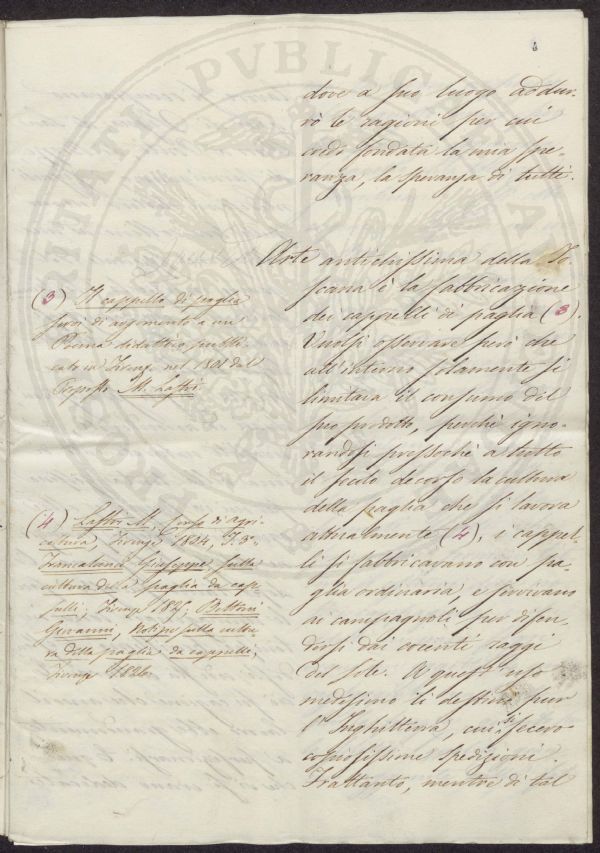 dove a suo luogo addur-
rò le ragioni per cui
credo fondata la mia spe-
ranza, la speranza di tutti.
Arte antichissima della To-
scana è la fabbricazione
dei cappelli di paglia (3).
Vuolsi osservare però che
all'interno solamente si
limitava il consumo del
suo prodotto, perchè igno-
randosi pressochè a tutto
il secolo decorso la cultura
della paglia che si lavora
attualmente (4), i cappel-
li si fabbricavano con pa-
glia ordinaria, e servivano
ai campagnoli per difen-
dersi dai cocenti raggi
del sole. A quest'uso
medesimo li destinò pur
l'Inghilterra, cui si fecero
copiosissime spedizioni.
Frattanto, mentre di tal
(3) Il cappello di paglia
servì di argomento a un
Poema didattico pubbli-
cato in Firenze nel 1801 dal
Proposto M. Lastri.
(4) Lastri M., Corso di agri-
coltura, Firenze 1804, T. 3°
Giuseppe, sulla
cultura della paglia da cap-
pelli, Firenze Bettoni
Giovanni, Notizie sulla cultu-
ra della paglia da cappelli,
Firenze 1826.
PROSPERITATI PVBLICAE